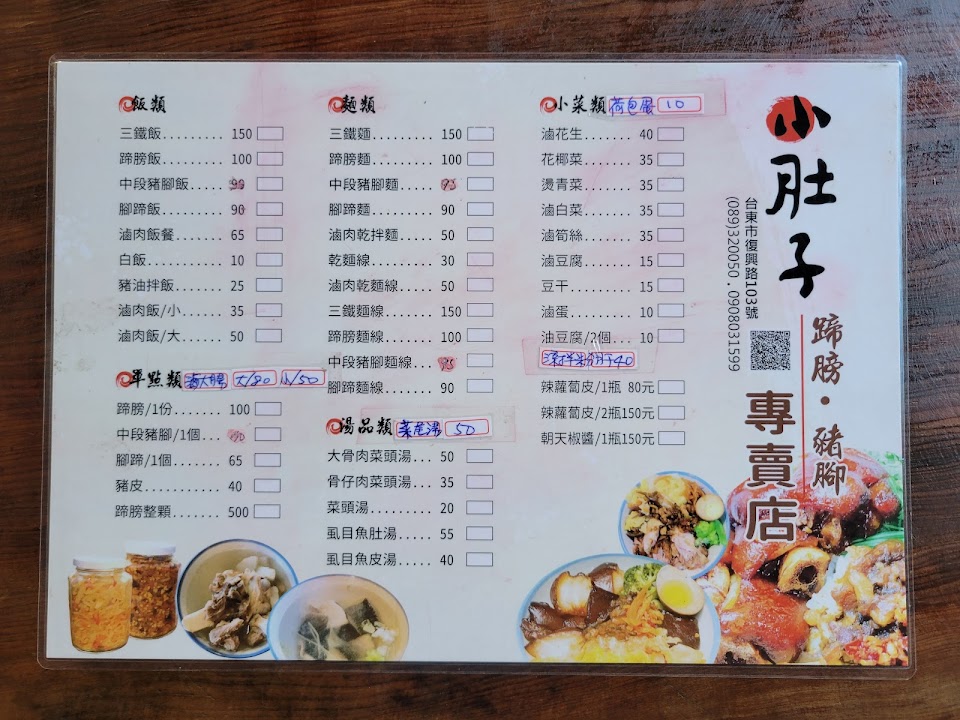 飯類
三鐵飯......... 150
蹄膀飯......... 100
中段豬腳飯.....
腳蹄飯......... 90
滷肉飯餐....... 65
白飯........... 10
豬油拌飯....... 25
滷肉飯/小...... 35
滷肉飯/大...... 50
單點類 大/80 小/50
蹄膀/1份....... 100
中段豬腳/1個...
腳蹄/1個....... 65
豬皮........... 40
蹄膀整顆....... 500
麵類
三鐵麵......... 150
蹄膀麵......... 100
中段豬腳麵.....
腳蹄麵......... 90
滷肉乾拌麵..... 50
乾麵線......... 30
滷肉乾麵線..... 50
三鐵麵線....... 150
蹄膀麵線....... 100
中段豬腳麵線...
腳蹄麵線....... 90
湯品類 50
大骨肉菜頭湯... 50
骨仔肉菜頭湯... 35
菜頭湯......... 20
虱目魚肚湯..... 55
虱目魚皮湯..... 40
小菜類 荷包蛋 10
滷花生........ 40
花椰菜........ 35
燙青菜........ 35
滷白菜........ 35
滷筍絲........ 35
滷豆腐........ 15
豆干.......... 15
滷蛋.......... 10
油豆腐/2個.... 10
40
辣蘿蔔皮/1瓶 80元
辣蘿蔔皮/2瓶150元
朝天椒醬/1瓶150元
小肚子
台東市復興路103號
(089)320050．0908031599
蹄膀・豬腳
專賣店